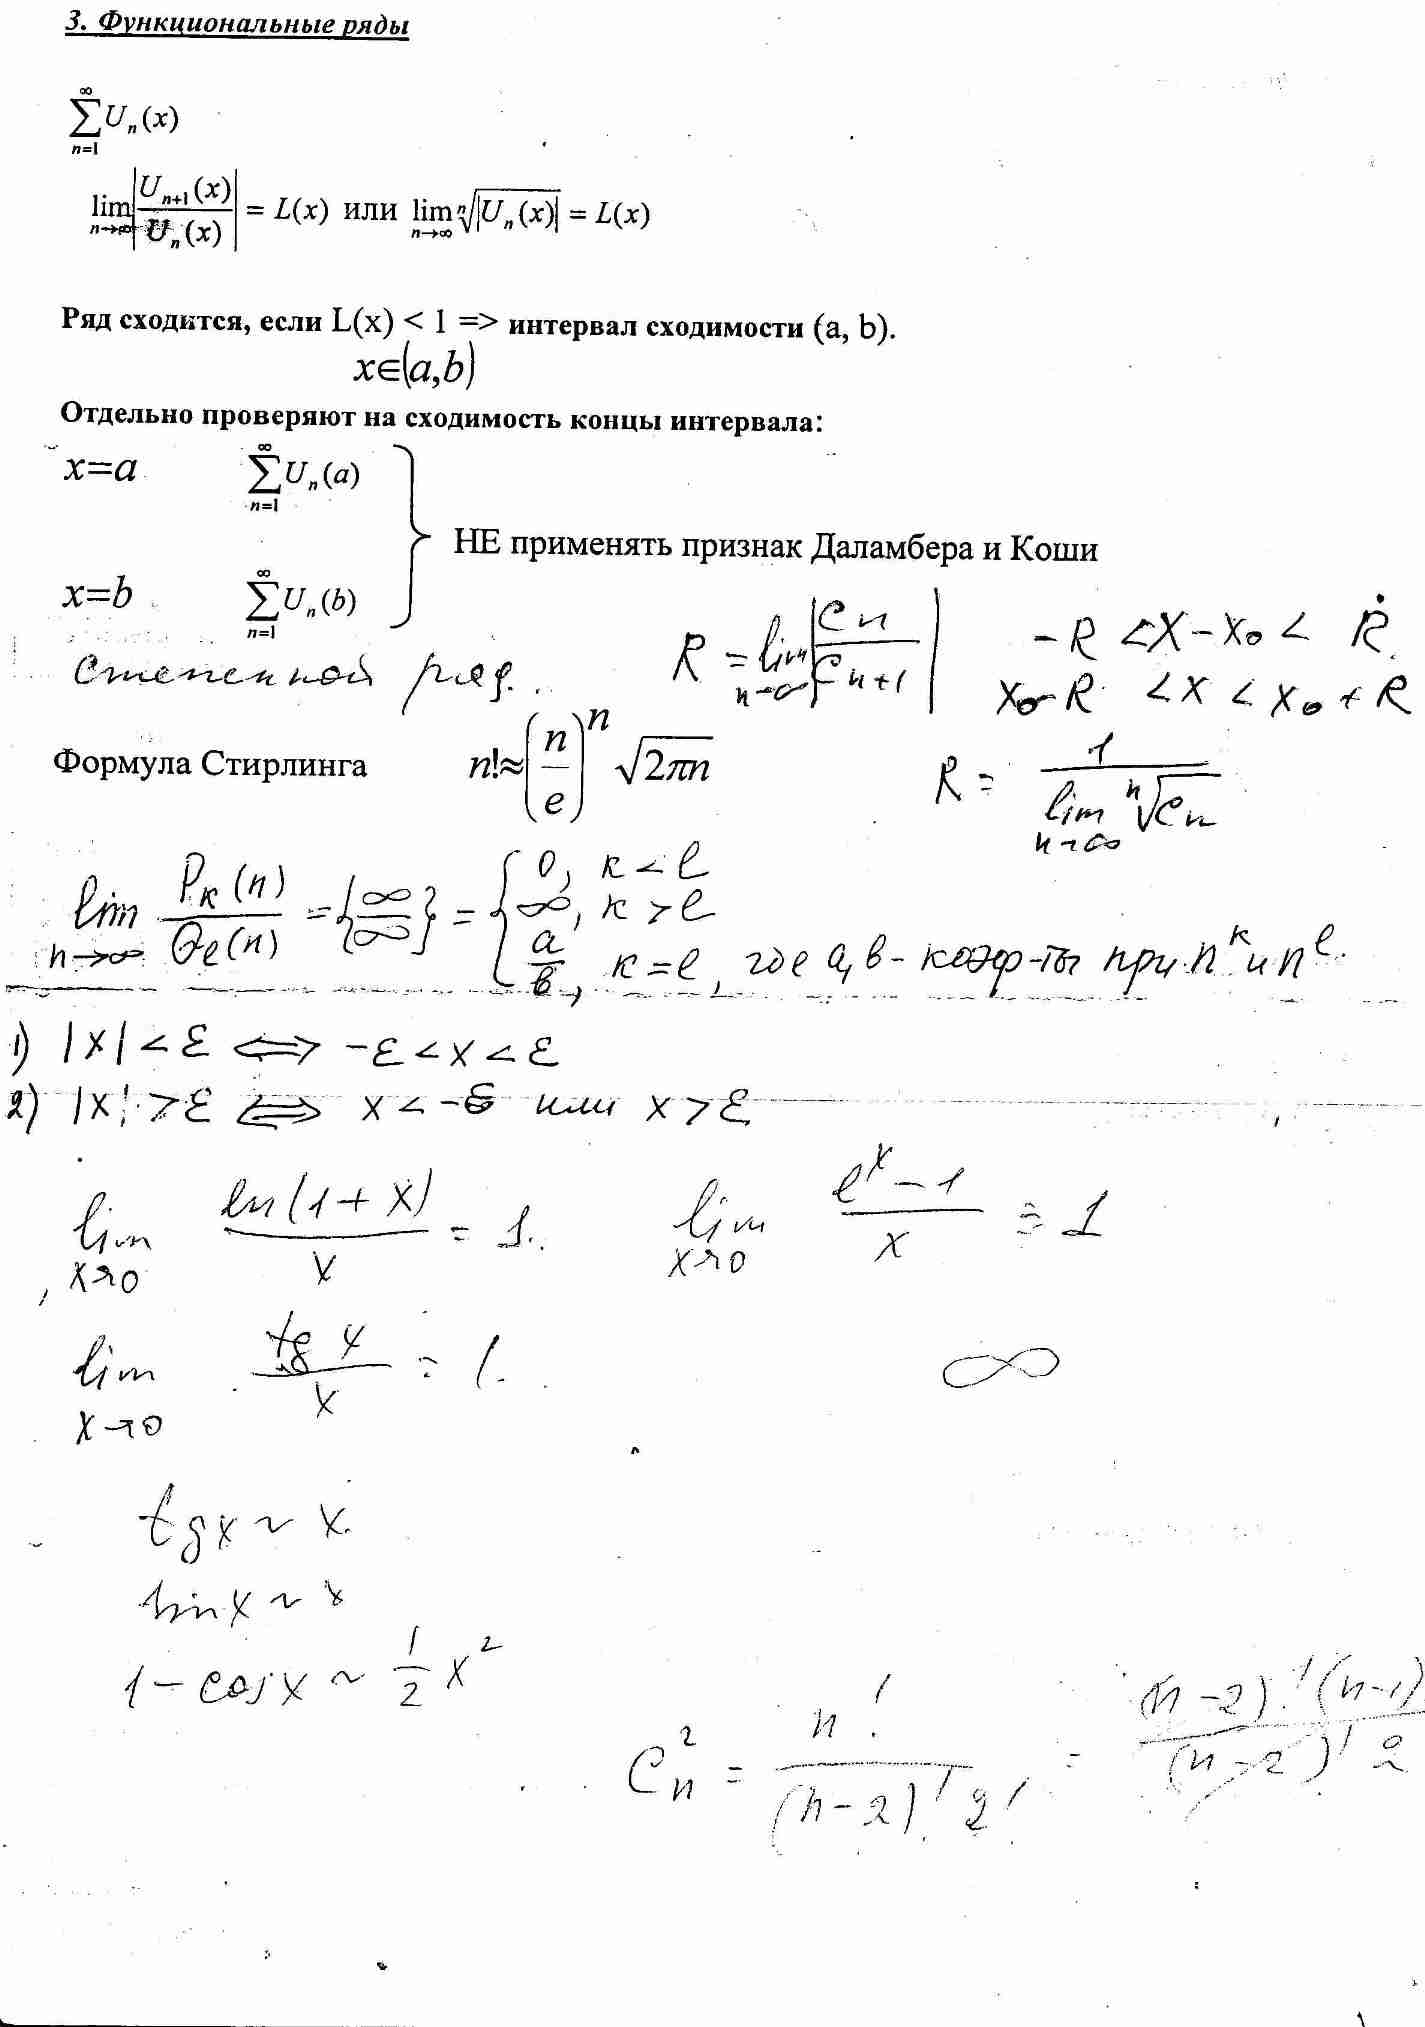 3. Функциональные ряды
∞
∑ Uₙ(x)
n=1
lim |Uₙ₊₁(x) / Uₙ(x)| = L(x) или lim ⁿ√|Uₙ(x)| = L(x)
n→∞ n→∞
Ряд сходится, если L(x) < 1 => интервал сходимости (a, b).
x∈(a,b)
Отдельно проверяют на сходимость концы интервала:
x=a ∑ Uₙ(a)
n=1
НЕ применять признак Даламбера и Коши
x=b ∑ Uₙ(b)
n=1
R = lim |Cₙ / Cₙ₊₁| -R < x - x₀ < R
n→∞
Степенной ряд. x₀-R < x < x₀ + R
Формула Стирлинга n!≈(n/e)ⁿ √2πn
R = 1 / lim ⁿ√Cₙ
n→∞
lim Pₖ(n) / Qₑ(n) = {∞/∞} = { 0, к < l
∞, к > l
a/в, к = l, где a, в - коэф-ты при nᵏ и nˡ.
n→∞
1) |x| < ε ⟺ -ε < x < ε
2) |x| > ε ⟺ x < -ε или x > ε
lim ln(1+x) / x = 1. lim eˣ - 1 / x = 1
x→0 x→0
lim tg x / x = 1. ∞
x→0
tg x ~ x.
sin x ~ x
1 - cos x ~ 1/2 x²
Cₙ² = n! / (n-2)! 2! = (n-2)! (n-1) / (n-2)! 2